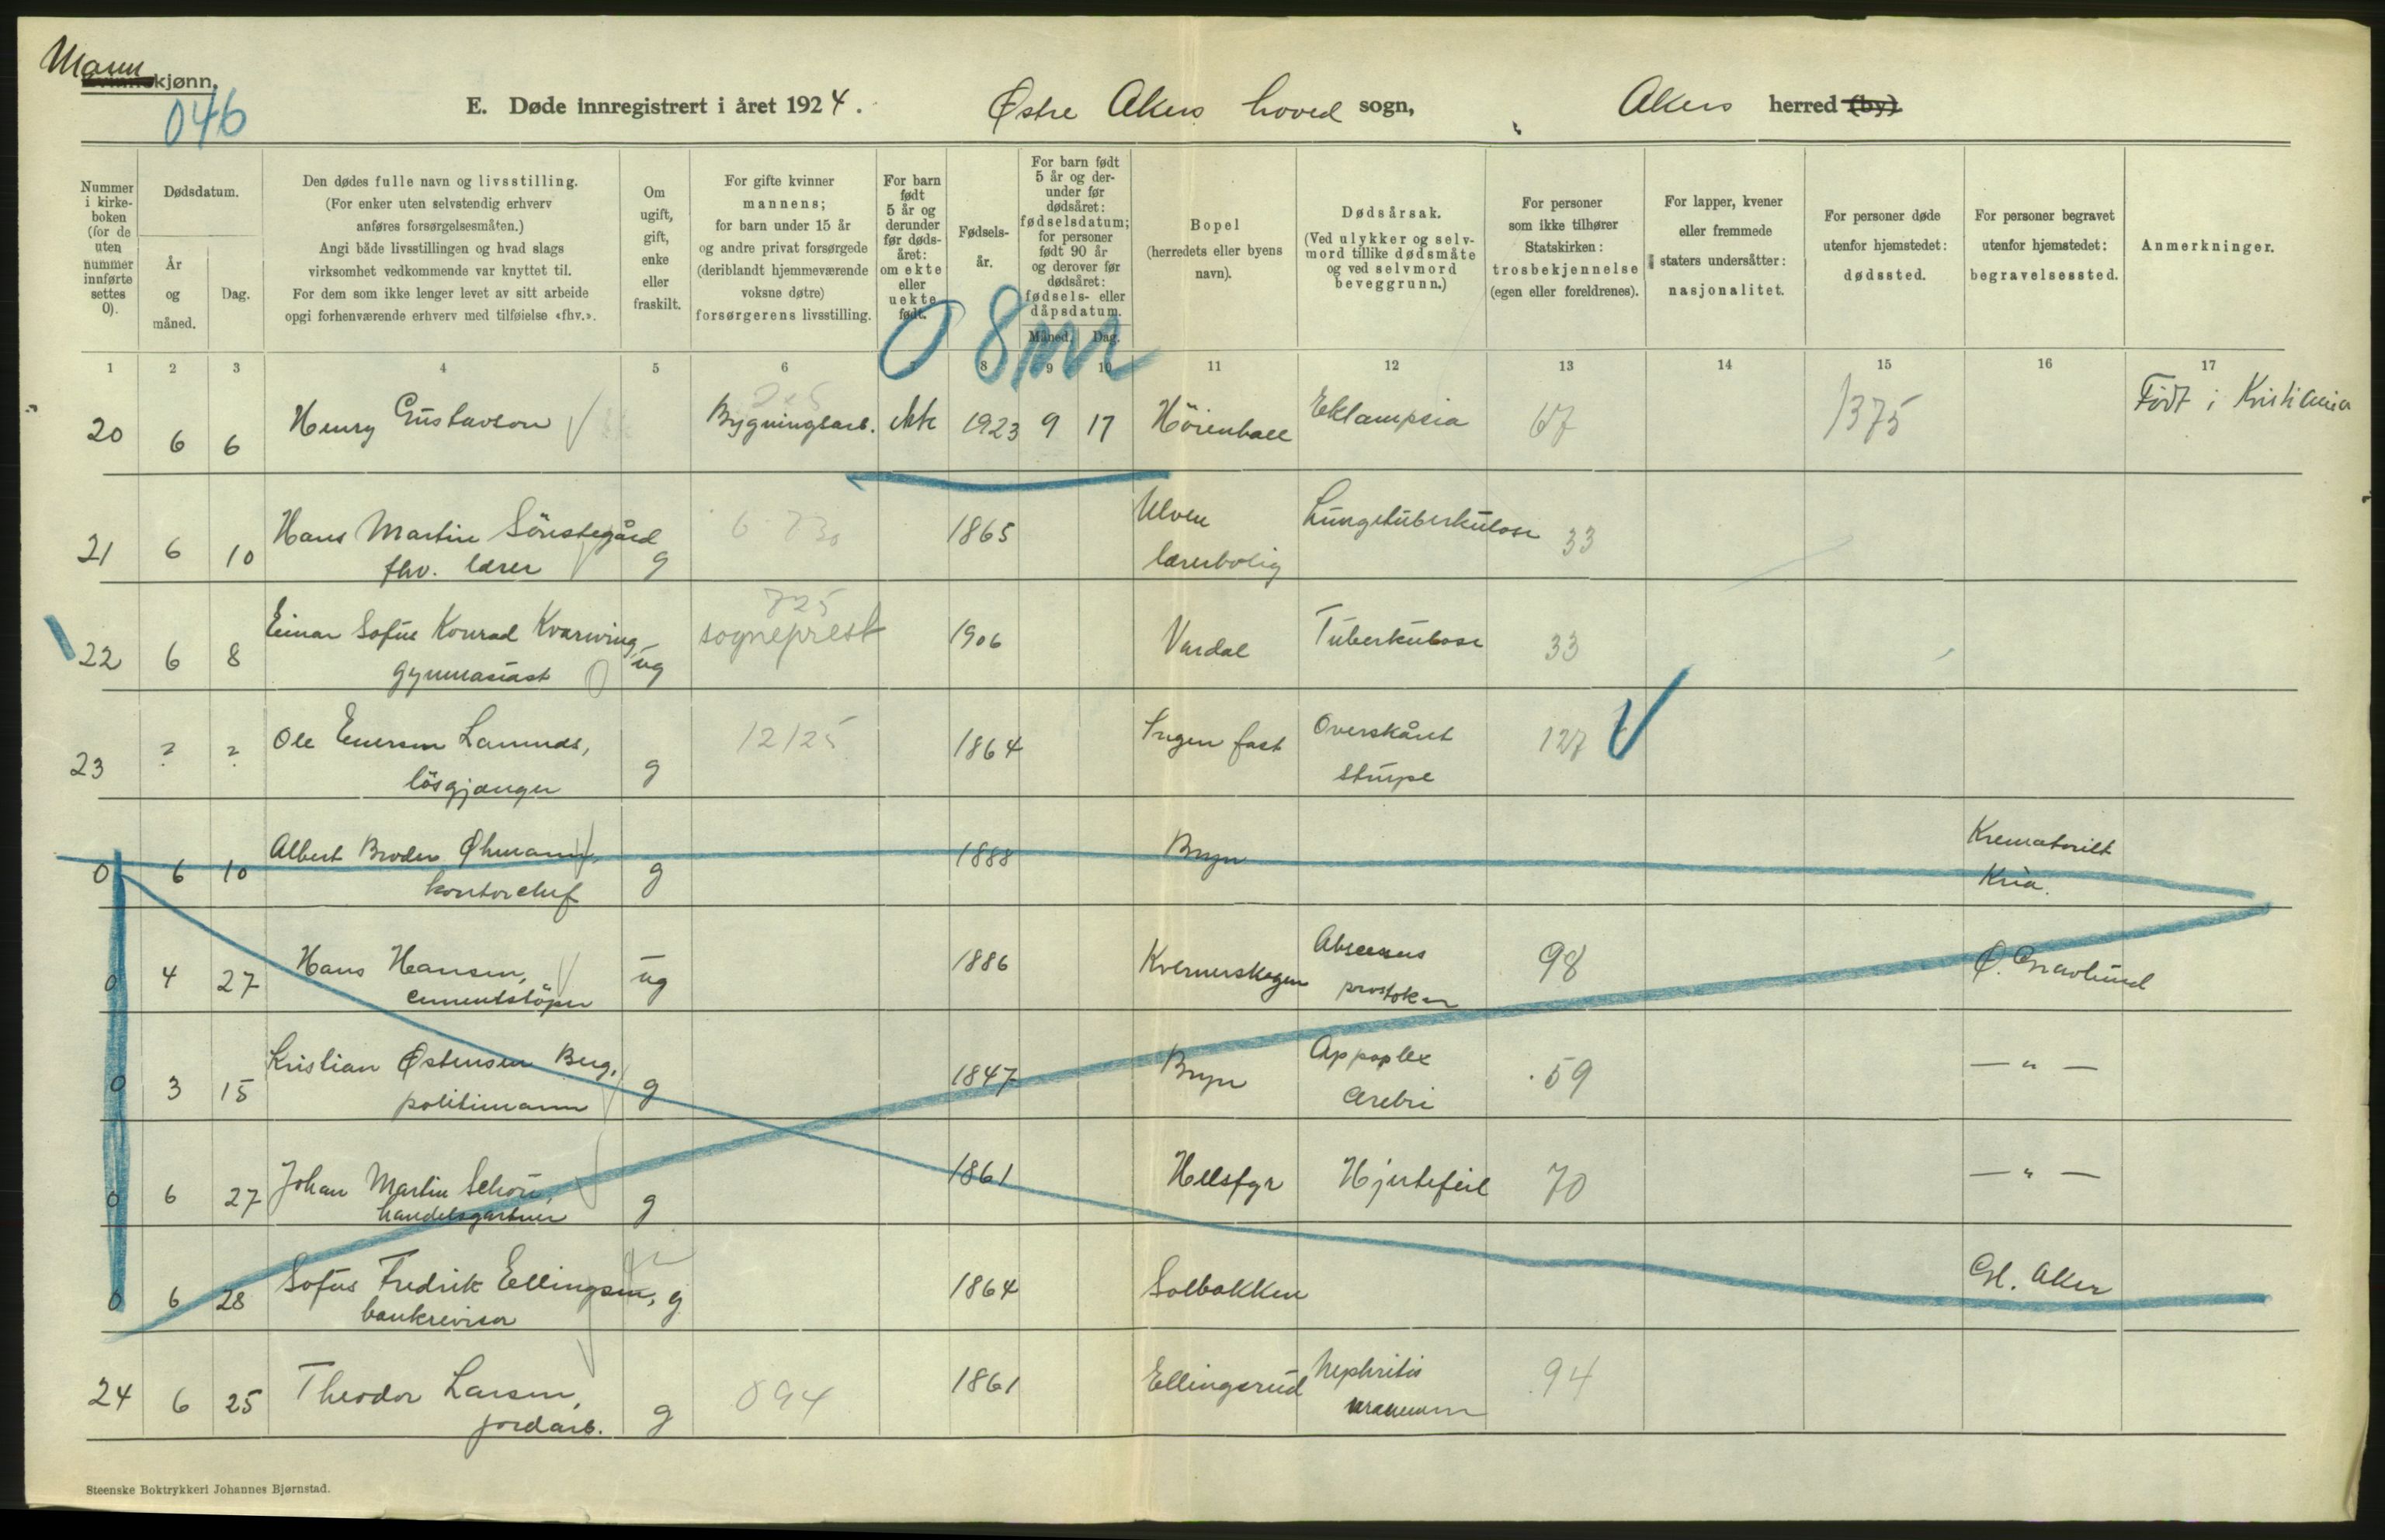 Mann kjønn.
046
E. Døde innregistrert i året 1924. Østre Akers hoved sogn, Akers herred (by).
Nummer i kirke-boken (for de uten nummer innførte settes 0).
Dødsdatum.
År og måned.
Dag.
Den dødes fulle navn og livsstilling.
(For enker uten selvstendig erhverv
anføres forsørgelsesmåten.)
Angi både livsstillingen og hvad slags
virksomhet vedkommende var knyttet til.
For dem som ikke lenger levet av sitt arbeide
opgi forhenværende erhverv med tilføielse «fhv.».
Om
ugift,
gift,
enke
eller
fraskilt.
For gifte kvinner
mannens;
for barn under 15 år
og andre privat forsørgede
(deriblandt hjemmeværende
voksne døtre)
forsørgerens livsstilling.
For barn
født
5 år og
derunder
før døds-
året:
om ekte
eller
uekte
født.
Fødsels-
år.
For barn født
5 år og der-
under før
dødsåret:
fødselsdatum;
for personer
født 90 år
og derover før
dødsåret:
fødsels- eller
dåpsdatum.
Måned. Dag.
Bopel
(herredets eller byens
navn).
Dødsårsak.
(Ved ulykker og selv-
mord tillike dødsmåte
og ved selvmord
beveggrunn.)
For personer
som ikke tilhører
Statskirken:
trosbekjennelse
(egen eller foreldrenes).
For lapper, kvener
eller fremmede
staters undersåtter:
nasjonalitet.
For personer døde
utenfor hjemstedet:
dødssted.
For personer begravet
utenfor hjemstedet:
begravelsessted.
Anmerkninger.
0 8 mnd
1 2 3 4 5 6 7 8 9 10 11 12 13 14 15 16 17
20 6 6 Henry Gustavson Bygningsarb. ekte 1923 9 17 Höienhall Eklampsia 67 1375 Födt i Kristiania
21 6 10 Hans Martin Sönstegård g 6 730 1865 Ulven Lungetuberkulose 33
fhv. lærer lærerbolig
725
22 6 8 Einar Sofus Konrad Kvarving ug sogneprest 1906 Vardal Tuberkulose 33
gymnasiast
23 ? ? Ole Enersen Lamnes, g 12125 1864 Ingen fast Overskåret 127
lösgjænger strupe
0 6 10 Albert Broder Øhmann, g 1888 Bryn Krematoriet
kontorchef Kria.
0 4 27 Hans Hansen, ug 1886 Kvernerskogen Abscessus 98 Ø. Gravlund
cementstöper prostokar
0 3 15 Kristian Østensen Berg, g 1847 Bryn Appoplex 59 — " —
politimann cerebri
0 6 27 Johan Martin Schou, g 1861 Helsfyr Hjertefeil 70 — " —
handelsgartner
0 6 28 Sofus Fredrik Ellingsen, g 1864 Solbakken Gl. Aker
bankrevisor
24 6 25 Theodor Larsen, g 094 1861 Ellingsrud Nephritis 94
jordarb.
Steenske Boktrykkeri Johannes Bjørnstad.